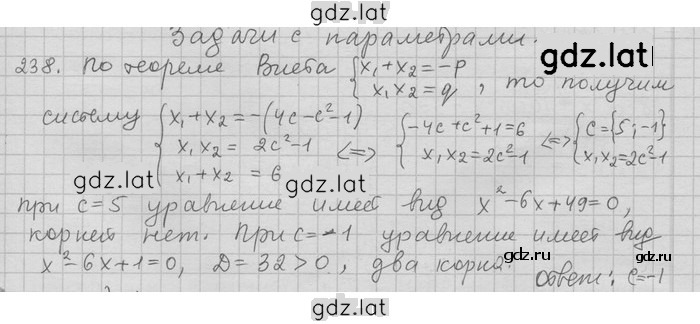 gdz.lat
Задачи с параметрами.
gdz.lat
238. По теореме Виета { x₁+x₂=-p
x₁x₂=q , то получим
gdz.lat
систему { x₁+x₂=-(4c-c²-1)
x₁x₂= 2c²-1
x₁+x₂ = 6
<=> { -4c+c²+1=6
x₁x₂=2c²-1
<=> { c={5;-1}
x₁x₂=2c²-1
gdz.lat
gdz.lat
При c=5 уравнение имеет вид x²-6x+49=0,
корней нет. При c=-1 уравнение имеет вид
gdz.lat
x²-6x+1=0, D=32>0, два корня.
Ответ: c=-1
gdz.lat